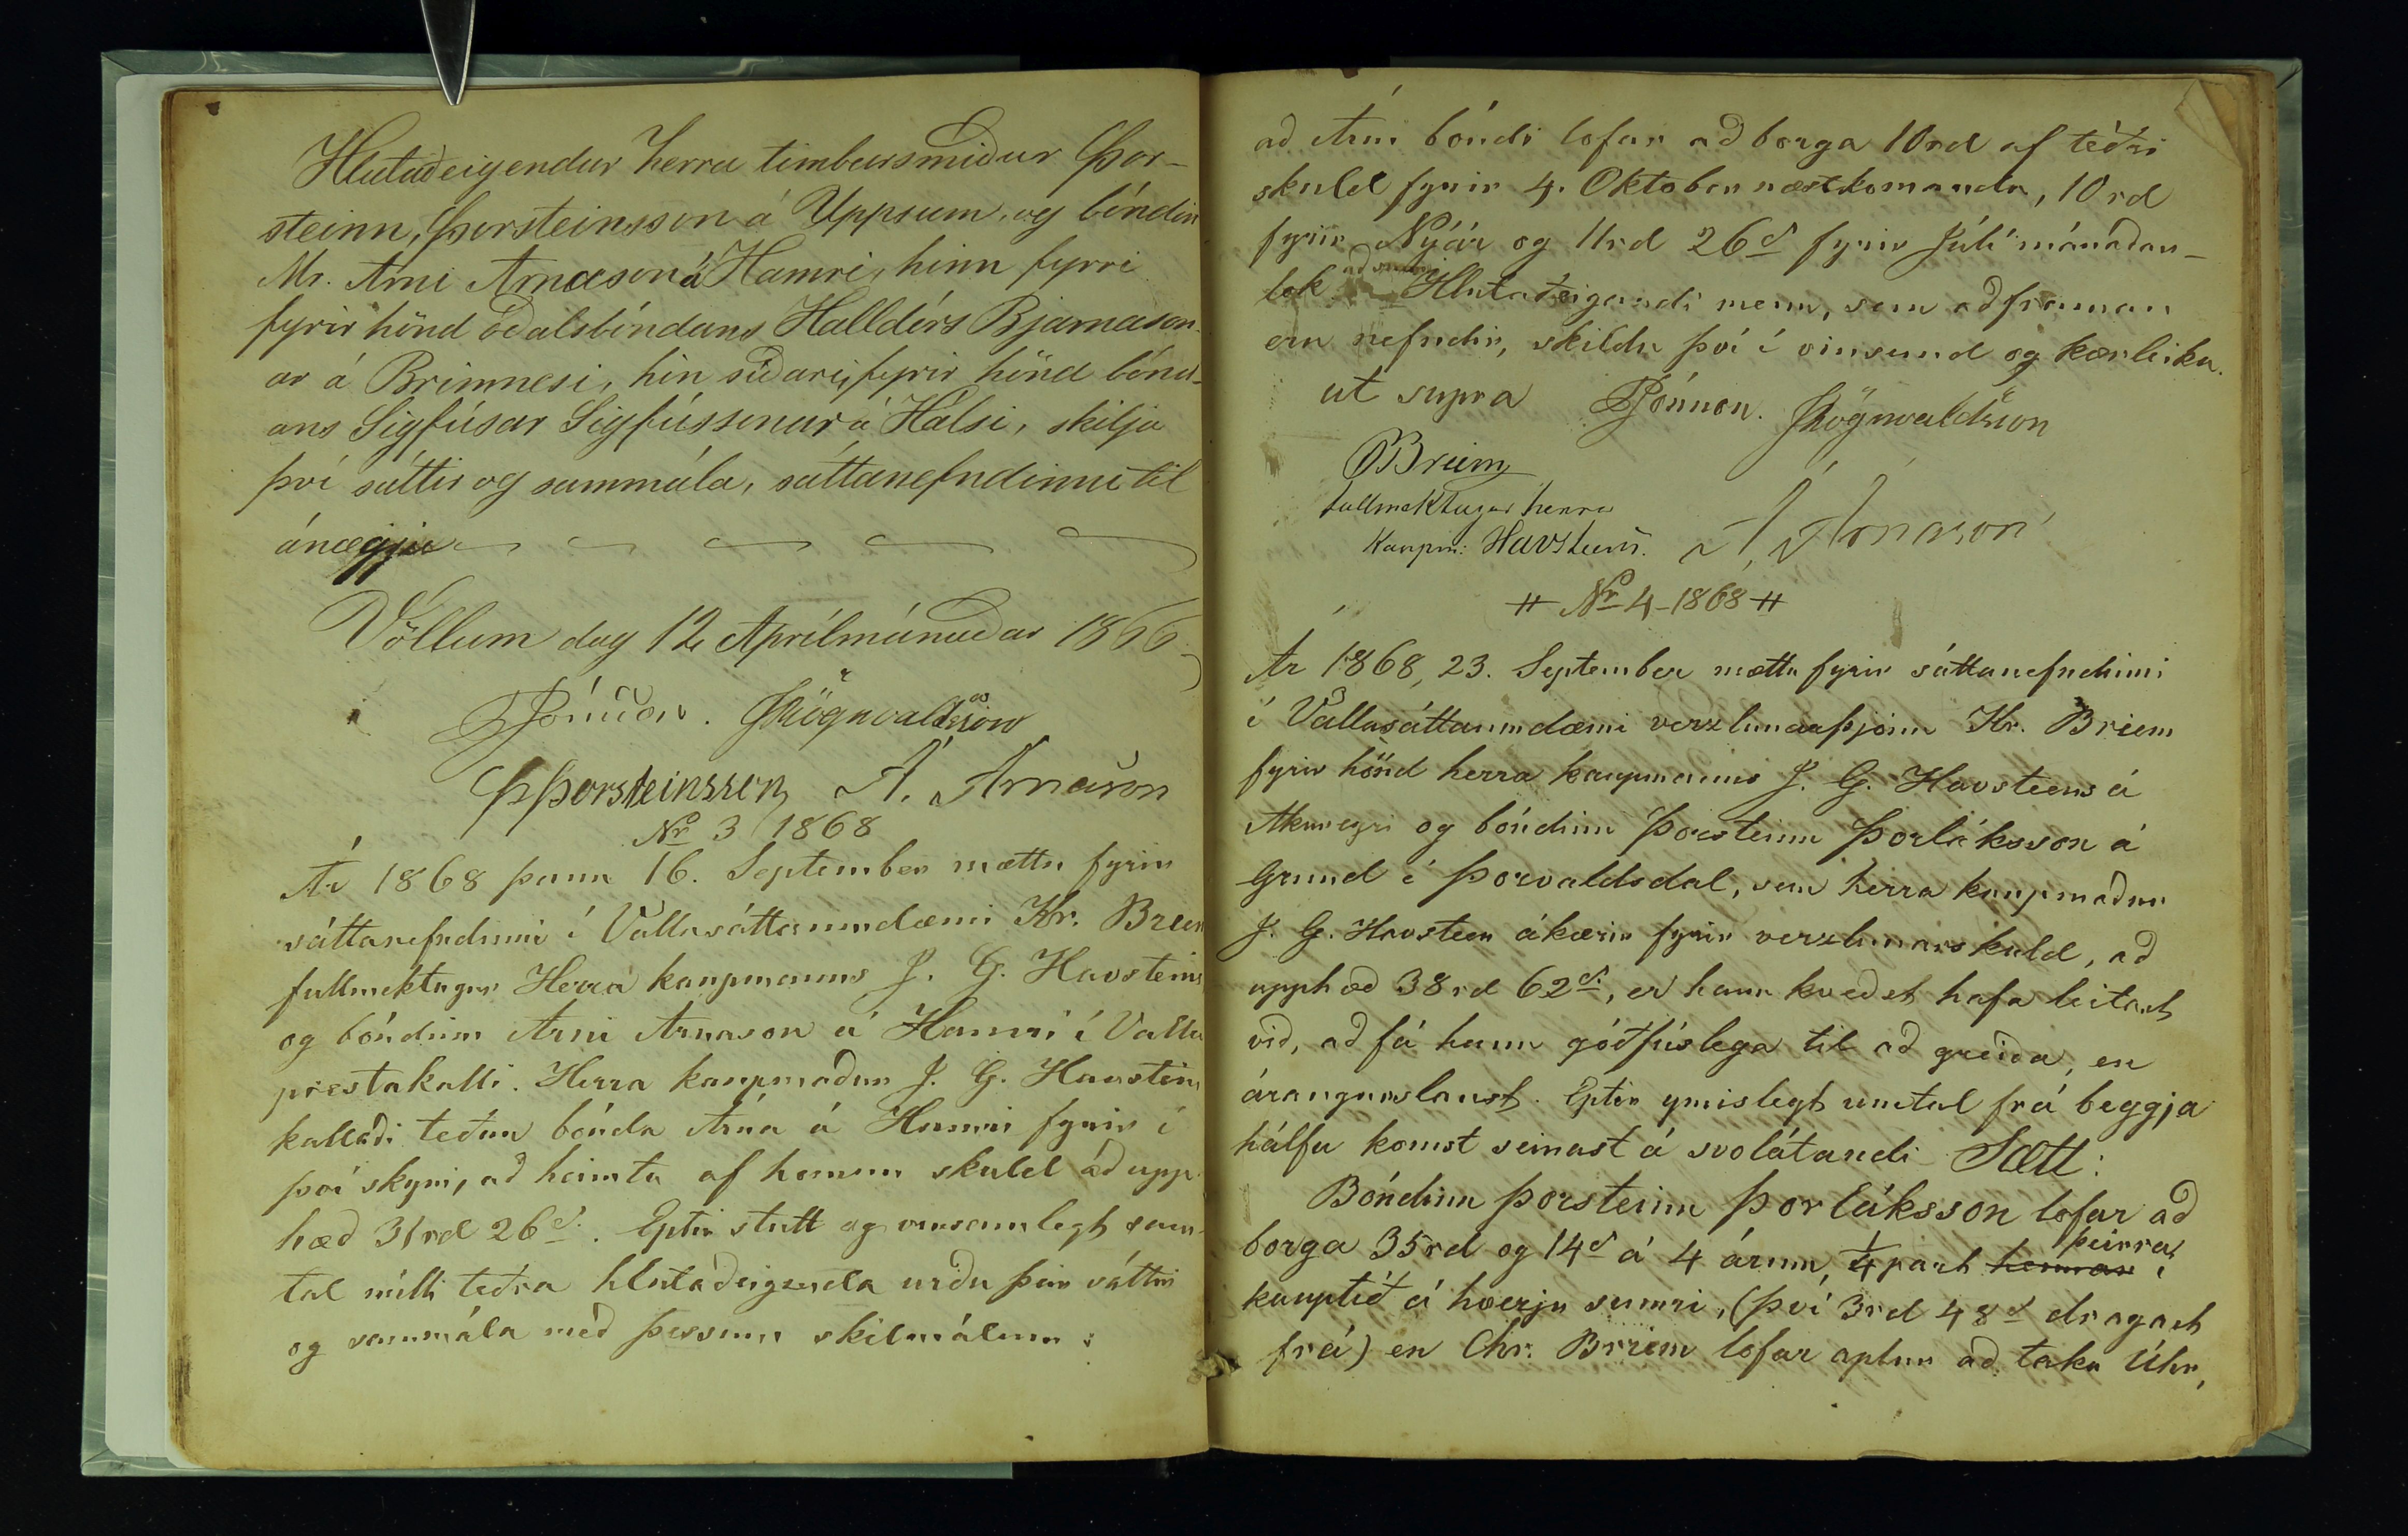 Hlutaðeigendur herra timbursmiður Þor-
steinn Þorsteinsson á Uppsum, og bóndin
Mr. Arni Arnason á Hamri, hinn fyrri
fyrir hönd óðalsbóndans Halldórs Bjarnason-
ar á Brimnesi, hin síðari, fyrir hönd bónd-
ans Sigfúsar Sigfússonar á Hálsi, skilja
því sáttir og sammála, sáttanefndinni til
ánægju
Völlum dag 12 Aprílmánuðar 1866
PJónsson. JRögnvaldsson
ÞÞorsteinsson Á. Arnason
Nr 3 1868
Ár 1868 þann 16. September mættu fyrir
sáttanefndinni í Vallasáttaumdæmi Kr. Briem
fullmektugur Herra kaupmanns J. G. Havsteins
og bóndinn Arni Arnason á Hamri í Valla
prestakalli. Herra kaupmaður J. G. Havstein
kallaði teðan bónda Árna á Hamri fyrir í
því skyni, að heimta af honum skuld að upp-
hæð 31rd 26s. Eptir stutt og vinsamlegt sam-
tal milli teðra hlutaðeigenda urðu þeir sáttir
og sammála með þessum skilmálum:
að Árni bóndi lofar að borga 10rd af téðri
skuld fyrir 4. Oktober næstkomanda, 10rd
fyrir Nýár og 11rd 26s fyrir Júlí mánaðar-
lok Hlutaðeigandi menn, sem að framan
eru nefndir, skildu því í vinsemd og kærleika.
ut supra PJónsson. JRögnvaldsson
Briem
fullmektugur herra
Kaupm: Havsteens. Á Árnason
# Nr 4-1868 #
Ár 1868, 23. September mættu fyrir sáttanefndinni
í Vallasáttaumdæmi verzlunarþjónn Kr. Briem
fyrir hönd herra kaupmanns J. G. Havsteens á
Akureyri og bóndinn Þorsteinn Þorláksson á
Grund í Þorvaldsdal, sem herra kaupmaður
J. G. Havsteen ákærir fyrir verzlunarskuld, að
upphæð 38rd 62s., er hann kveðst hafa leitast
við, að fá hann góðfúslega til að greiða, en
árangurslaust. Eptir ymislegt umtal frá beggja
hálfu komst seinast á svolátandi Sætt:
Bóndinn Þorsteinn Þorláksson lofar að
borga 35rd og 14s á 4 árum, 1/4 part hennar þeirra í
kauptíð á hverju sumri, (því 3rd 48s dragast
frá) en Chr. Briem lofar aptur að taka Úhr,